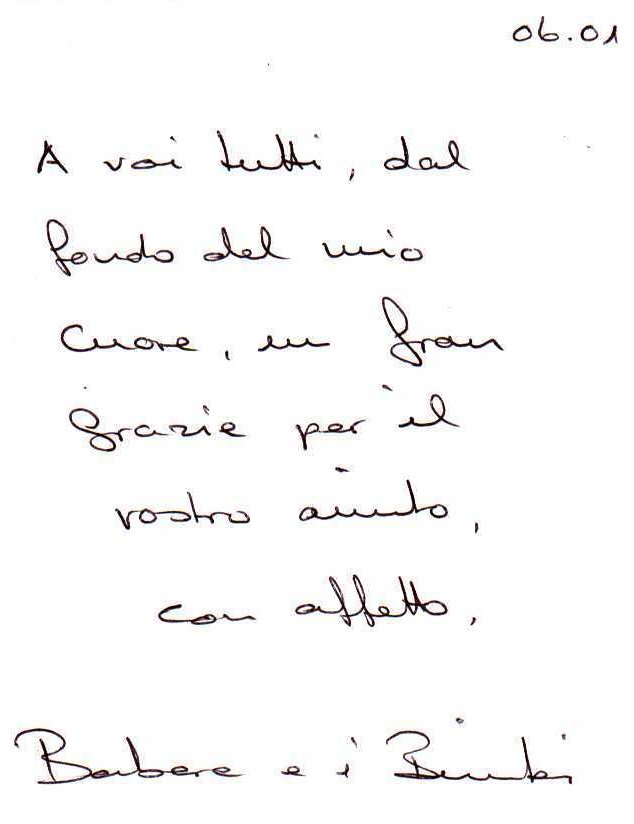 06.01
A voi tutti, dal
fondo del mio
cuore, un gran
grazie per il
vostro aiuto,
con affetto,
Barbara e i Bimbi